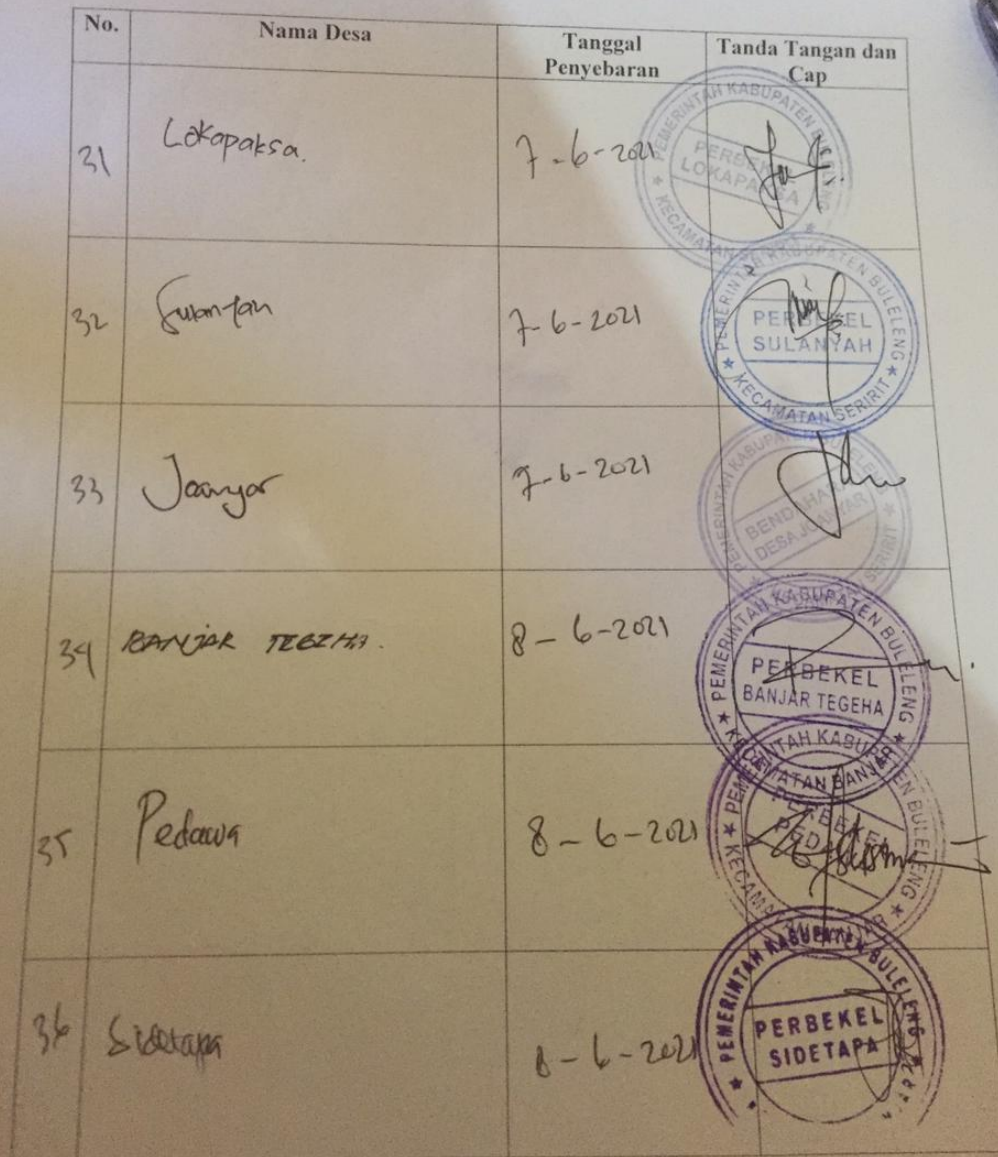 No.
Nama Desa
Tanggal
Penyebaran
Tanda Tangan dan
Cap
31
Lokapaksa.
7-6-2021
PEMERINTAH KABUPATEN
PERBEKEL
LOKAPAKSA
KECAMATAN
32
Sulanyah
7-6-2021
PEMERINTAH KABUPATEN BULELENG
PERBEKEL
SULANYAH
KECAMATAN SERIRIT
33
Joanyar
7-6-2021
PEMERINTAH KABUPATEN BULELENG
BENDAHARA
DESA JOANYAR
SERIRIT
34
BANJAR TEGEHA.
8-6-2021
PEMERINTAH KABUPATEN BULELENG
PERBEKEL
BANJAR TEGEHA
KECAMATAN BANJAR
35
Pedawa
8-6-2021
PEMERINTAH KABUPATEN BULELENG
PERBEKEL
PEDAWA
KECAMATAN BANJAR
36
Sidetapa
8-6-2021
PEMERINTAH KABUPATEN BULELENG
PERBEKEL
SIDETAPA